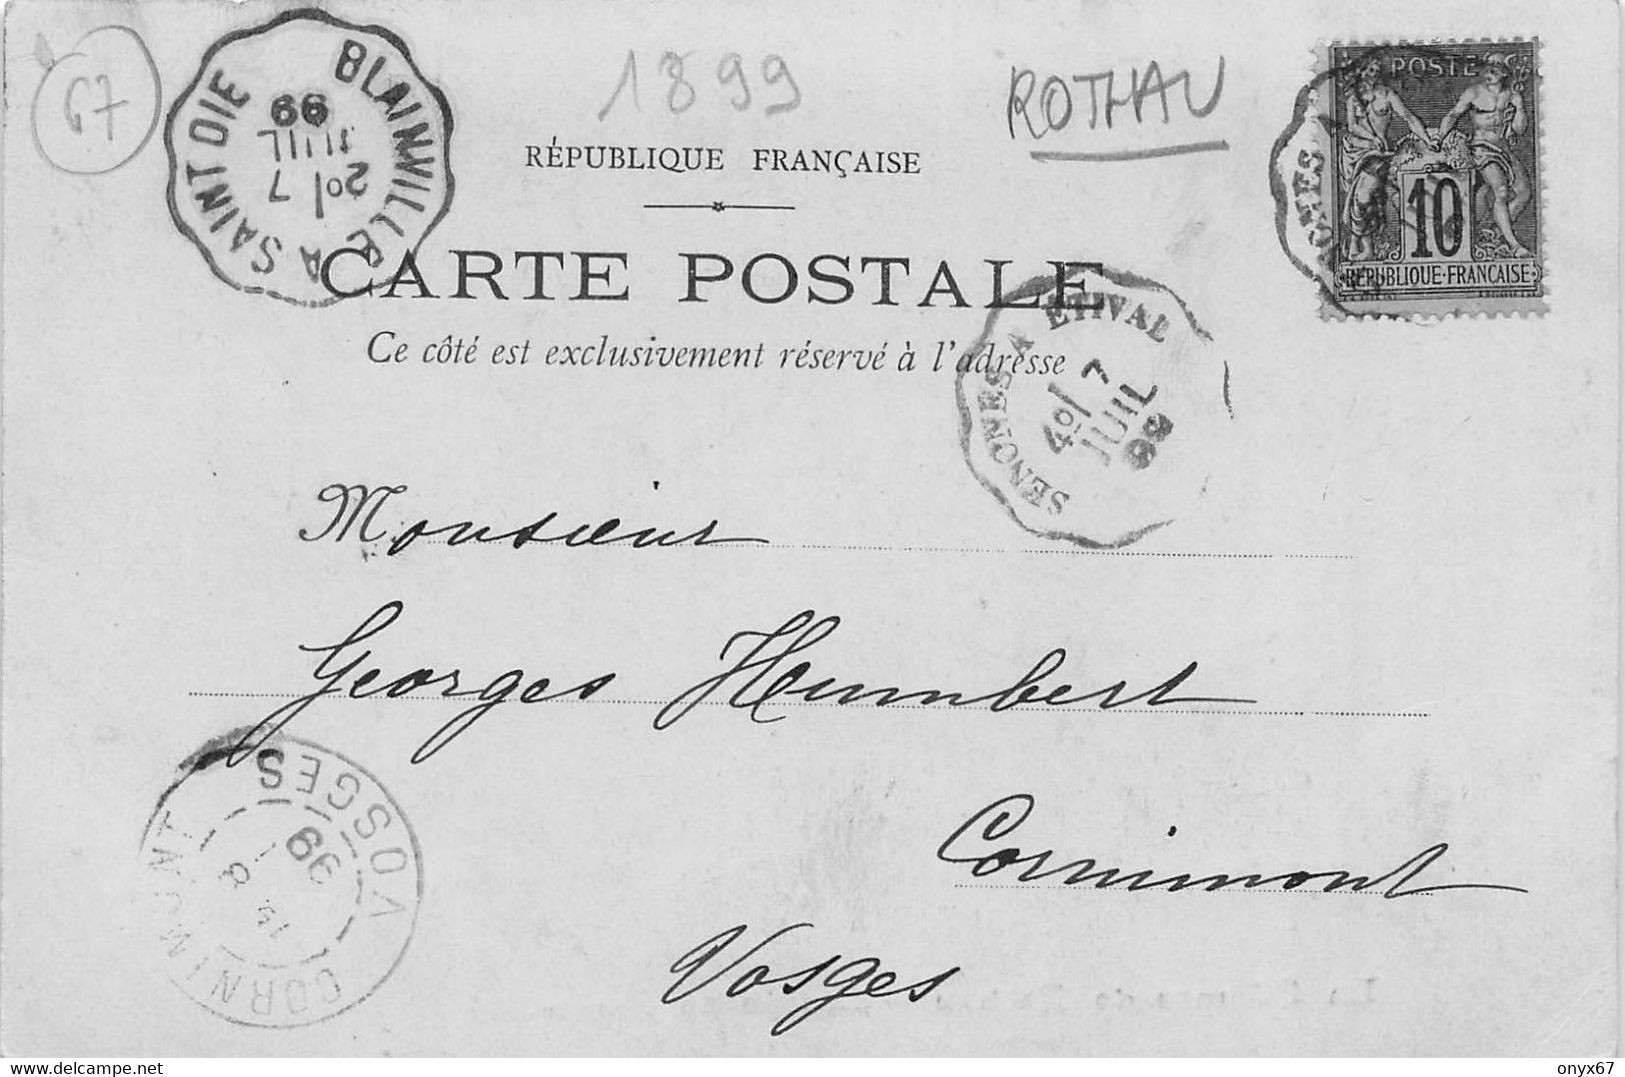 67
BLAINVILLE A SAINT DIE
20/ 7
JUIL
99
1899
ROTHAU
POSTE
10
REPUBLIQUE·FRANÇAISE
RÉPUBLIQUE FRANÇAISE
CARTE POSTALE
Ce côté est exclusivement réservé à l'adresse
SENONES A ETIVAL
4º/ 7
JUIL
99
Monsieur
Georges Humbert
Cornimont
Vosges
CORNIMONT
VOSGES
99
https://www.delcampe.net
onyx67